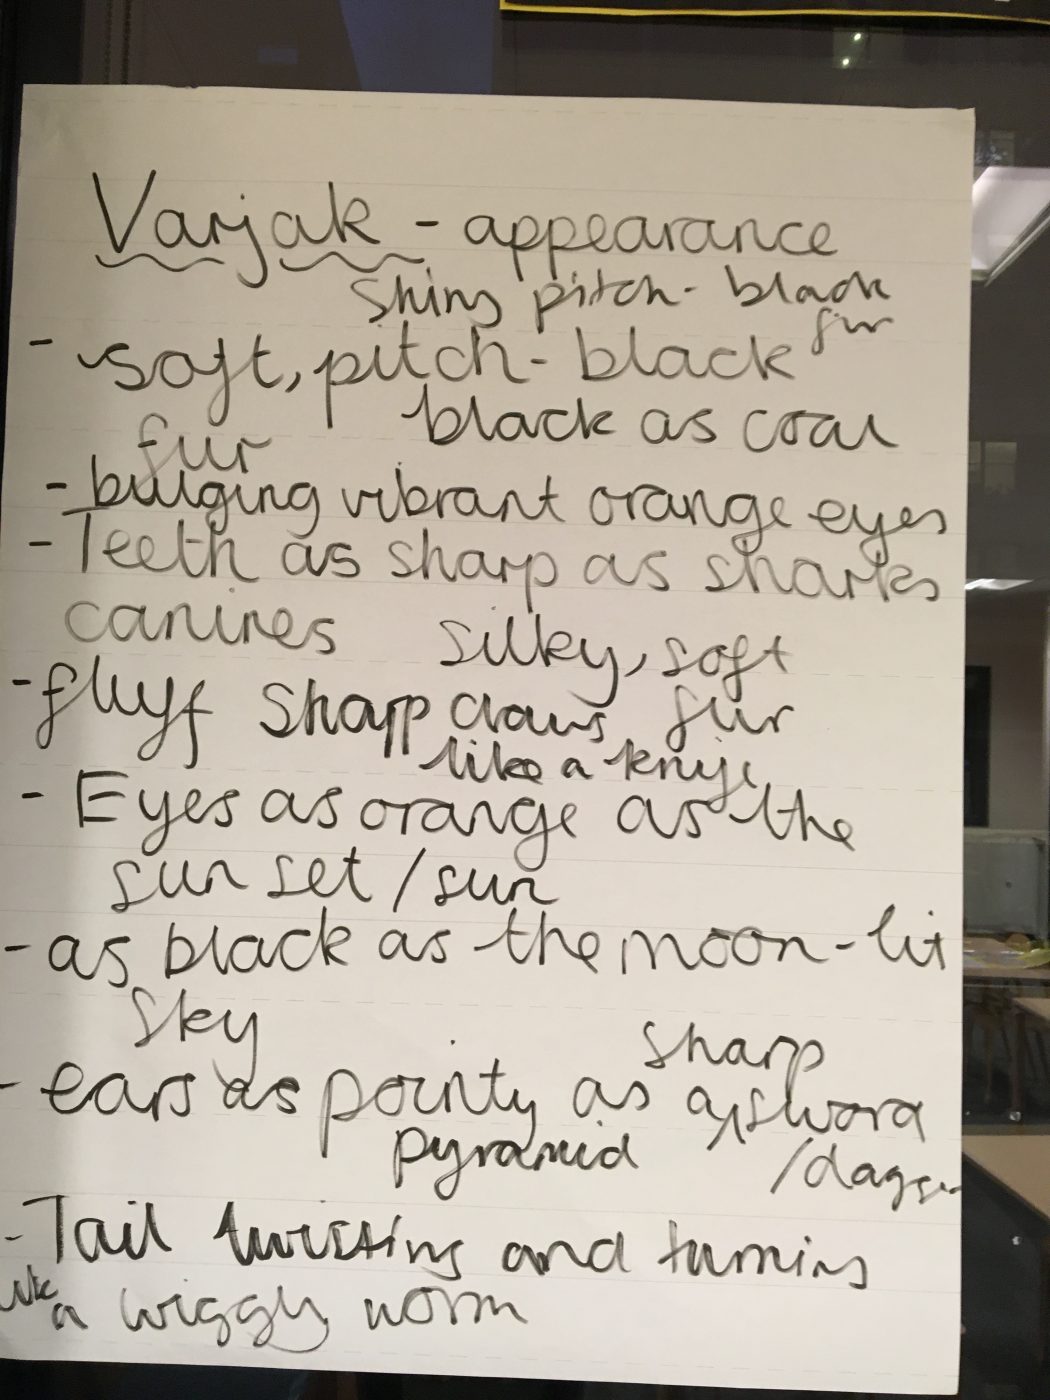 Varjak - appearance
shiny pitch-black
fur
- soft, pitch-black
fur black as coal
- bulging vibrant orange eyes
- Teeth as sharp as sharks
canines silky, soft
- fluff sharp claws fur
like a knife
- Eyes as orange as the
sun set / sun
- as black as the moon-lit
sky
sharp
- ears as pointy as a sword
pyramid /dagger
- Tail twisting and turning
like a wiggly worm